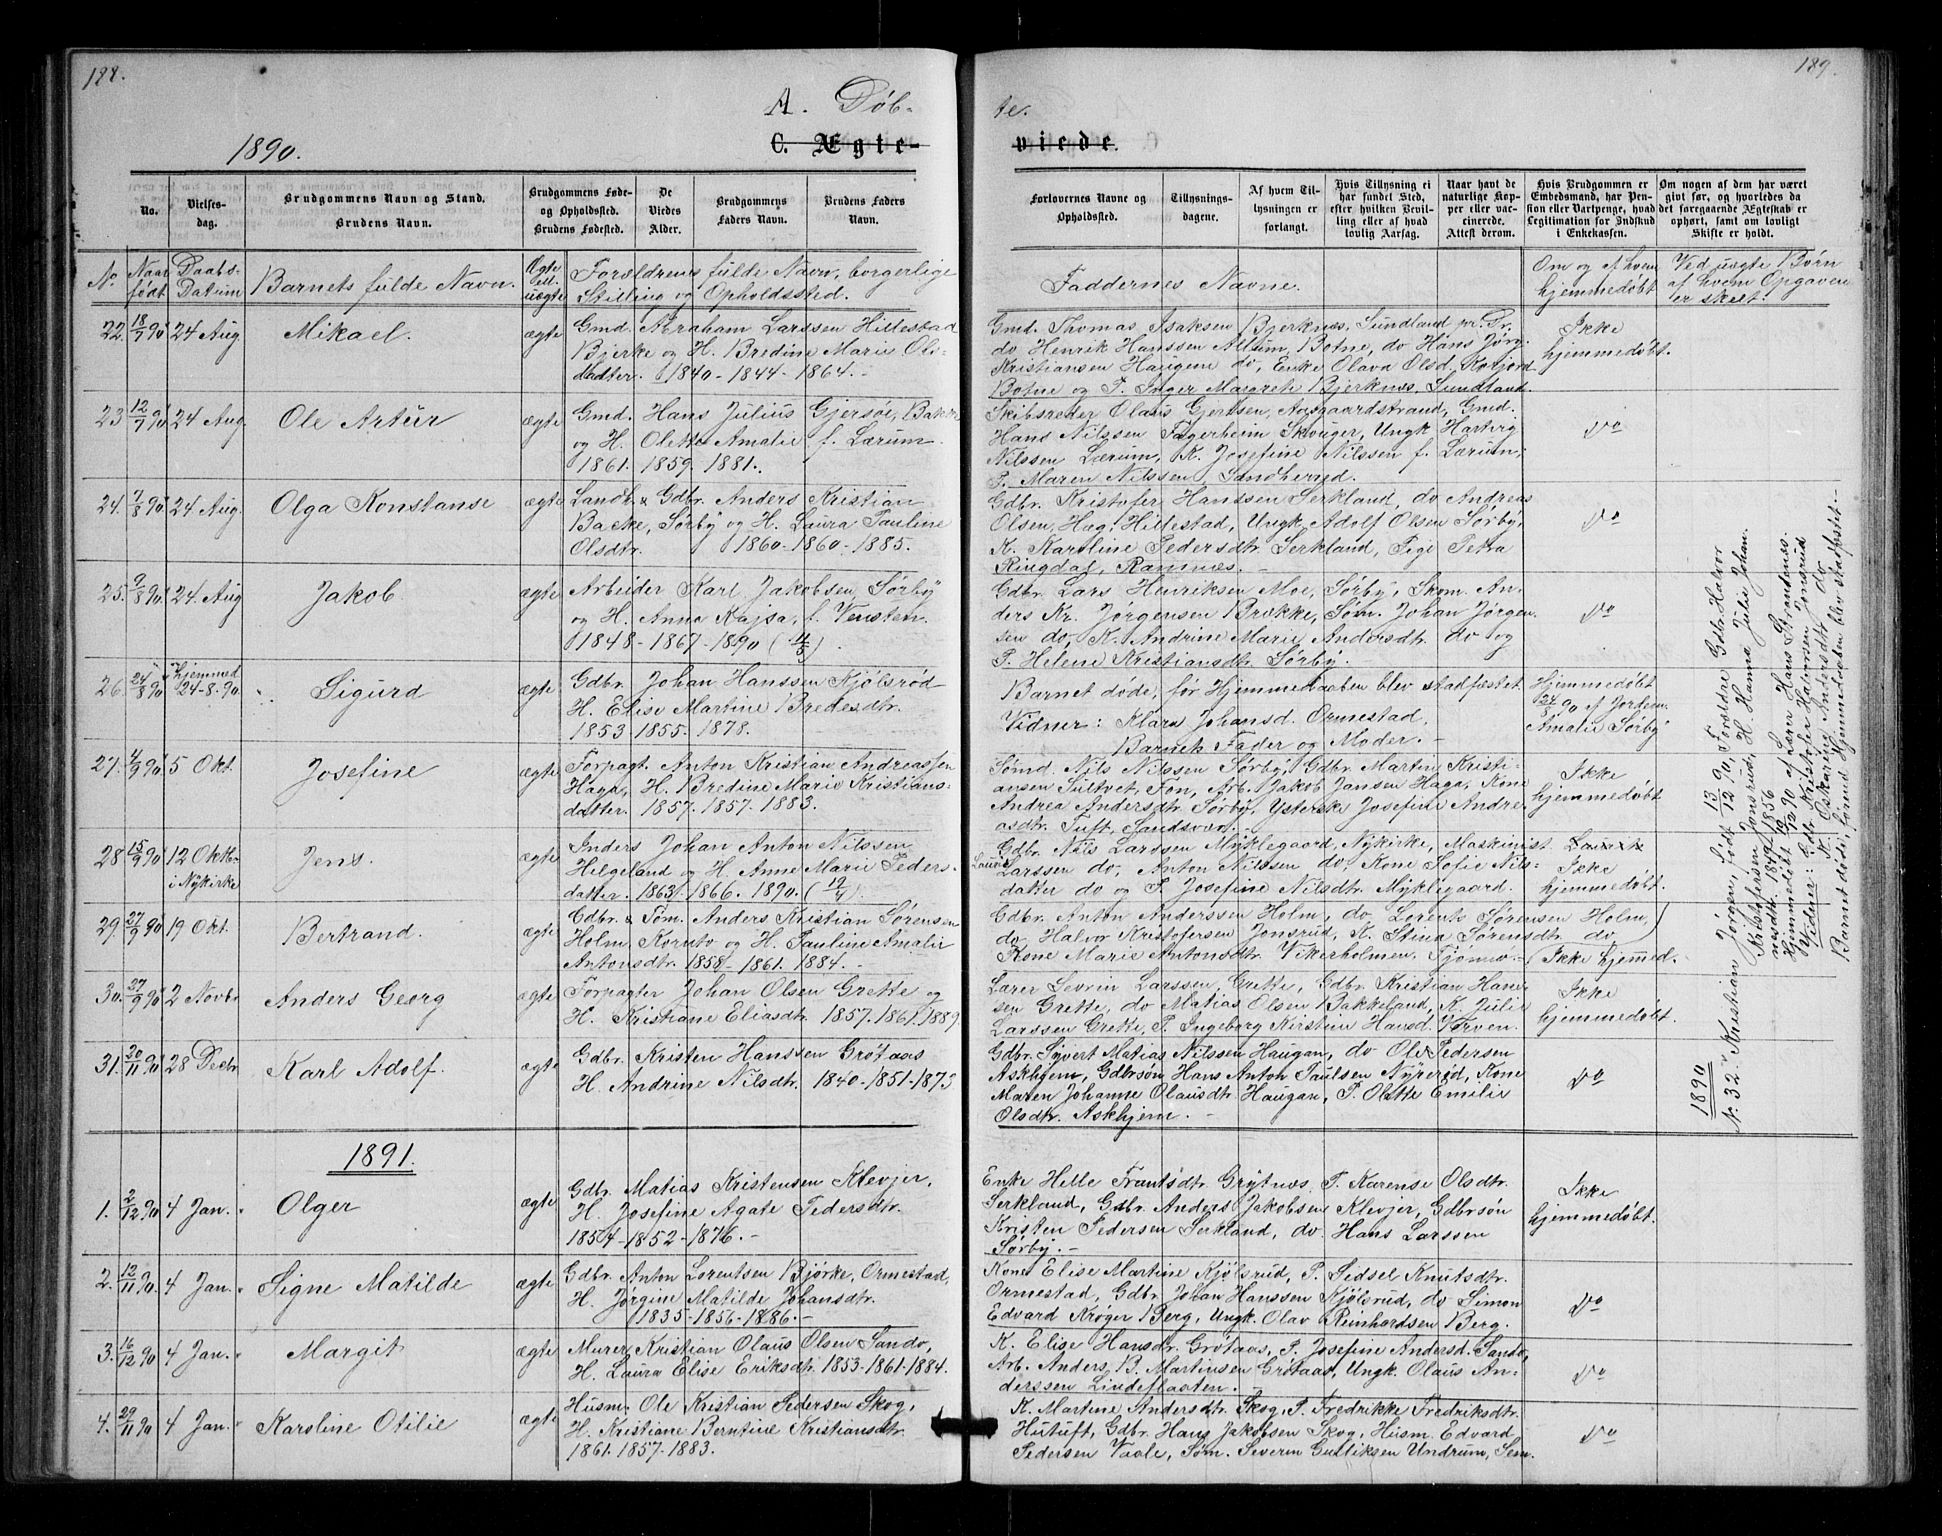 188.
A. Døb-
1890.
C. Ægte-
No.
Vielses-
dag.
Brudgommens Navn og Stand.
Brudens Navn.
Brudgommens Føde-
og Opholdssted.
Brudens Fødested.
De
Viedes
Alder.
Brudgommens
Faders Navn.
Brudens Faders
Navn.
No
Naar
født
Daabs-
Datum
Barnets fulde Navn.
Ægte
ell.
uægte
Forældrenes fulde Navn, borgerlige
Stilling og Opholdssted.
22. 18/7 90 24 Aug. Mikael. ægte Gmd. Abraham Larssen Hillestad
Bjerke og H. Bredine Marie Ols-
datter. 1840 - 1844 - 1864. -
23 12/7 90 24 Aug. Ole Artur ægte Gmd. Hans Julius Gjersøe, Baken
og H. Olette Amalie f. Lærum.
1861. 1859. 1881.
24. 7/8 90 24 Aug. Olga Konstanse ægte Landh. & Gdbr. Anders Kristian
Backe, Sørby og H. Laura Pauline
Olsdtr. 1860 - 1860 - 1885.
25. 9/8 90 24. Aug Jakob ægte Arbeider Karl Jakobsen, Sørby
og H. Anna Kajsa, f. Vensten.
1848 - 1867 - 1890 (4/5)
26. 24/8 90 Hjemmed 24-8-90 Sigurd ægte Gdbr. Johan Hanssen Kjølsrød
H. Elise Martine Bredesdtr.
1853. 1855. 1878.
27. 4/9 90 5 Okt. Josefine ægte Forpagt. Anton Kristian Andreassen
Haga, H. Bredine Marie Kristians-
datter. 1857. 1857. 1883.
28 15/9 90 12 Oktbr. i Nykirke Jens. ægte Inders Johan Anton Nilssen
Helgeland og H. Anne Marie Peders-
datter. 1863. 1866. 1890. (19/4)
29. 27/9 90 19 Okt. Bertrand. ægte Gdbr. & Søm. Anders Kristian Sørensen
Holm, Kornto og H. Pauline Amalie
Antonsdtr. 1858 - 1861. 1884. -
30. 27/9 90 2 Novbr Anders Georg ægte Forpagter Johan Olsen Grette og
H. Kristiane Eliasdtr. 1857. 1861. 1889.
31. 20/11 90 28 Decbr Karl Adolf. ægte Gdbr. Kristen Hanssen Grøtaas
H. Andrine Nilsdtr. 1840 - 1851 - 1873
1891.
1. 2/12 90 4 Jan. Olger ægte Gdbr. Matias Kristensen Klevjer,
H. Josefine Agate Pedersdtr.
1854 - 1852 - 1876. -
2. 12/11 90 4 Jan. Signe Matilde ægte Gdbr. Anton Lorentsen Bjørke, Ormestad,
H. Jørgine Matilde Johansdtr.
1835 - 1856 - 1886. -
3. 16/12 90 4 Jan. Margit ægte Murer Kristian Olaus Olsen Sando,
H. Laura Elise Eriksdtr. 1853. 1861. 1884.
4. 29/11 90 4 Jan. Karoline Otilie ægte Husm. Ole Kristian Pedersen Skog,
H. Kristiane Berntine Kristiansdtr.
1861. 1857. 1883.
189.
te.
viede.
Forlovernes Navne og
Opholdssted.
Tillysnings-
dagene.
Af hvem Til-
lysningen er
forlangt.
Hvis Tillysning ei
har fundet Sted,
efter hvilken Bevil-
ling eller af hvad
lovlig Aarsag.
Naar havt de
naturlige Kop-
per eller vac-
cinerede.
Attest derom.
Hvis Brudgommen er
Embedsmand, har Pen-
sion eller Vartpenge, hvad
Legitimation for Indskud
i Enkekassen.
Om nogen af dem har været
givt før, og hvorledes da
det foregaaende Ægteskab er
ophørt, samt om lovligt
Skifte er holdt.
Faddernes Navne.
Om og af hvem
hjemmedøbt
Ved uægte Børn
af hvem Opgaven
er skeet
Gmd. Thomas Isaksen Bjerknæs, Sundland pr. Dr.
do Henrik Hanssen Allum, Botne, do Hans Jørg.
Kristiansen Haugene do, Enke Olava Olsd. Kofjord
Botne og P. Inger Margreth Bjerknæs, Sundland.
Ikke
hjemmedøbt.
Skibsreder Olaus Gjertsen, Aasgaardstrand, Gmd.
Hans Nilssen Fagerheim Skouger, Ungk Hartvig
Nilssen Lærum, K. Josefine Nilssen f. Lærum,
P. Maren Nilssen, Sandherred.
Do
Gdbr. Kristofer Hanssen Serkland, do Andreas
Olsen, Hag, Hillestad, Ungk. Adolf Olsen Sørby,
K. Karoline Pedersdtr. Serkland, Pige Petra
Ringdal, Ramnæs. -
Do
Gdbr. Lars Henriksen Moe, Sørby, Skom. An-
ders Kr. Jørgensen Brekke, Søm. Johan Jørgen-
sen do, K. Andrine Marie Andersdtr. do og
P. Helene Kristiansdtr. Sørby.
Do
Barnet døde, før Hjemmedaaben blev stadfæstet.
Vidner: Klara Johansd. Ormestad,
Barnets Fader og Moder. -
Hjemmedøbt
24/8 90 af Jordem.
Amalie Sørby
Sømd. Nils Nilssen Sørby, Gdbr. Martin Kristi-
ansen Sultvet, Fon, Arb. Jakob Jansen Haga, Kone
Andrea Andersdtr. Sørby, Ysterske Josefine Andre-
asdtr. Tuft, Sandsvær. -
Ikke
hjemmedøbt
Gdbr. Nils Larssen Myklegaard, Nykirke, Maskinist Laurits
Laurits Larssen do, Anton Nilssen do, Kone Sofie Nils-
datter do og P. Josefine Nilsdtr. Myklegaard.
Ikke
hjemmedøbt.
Gdbr. Anton Anderssen Holm, do. Lorents Sørensen Holm,
do Halvor Kristofersen Jonsrud, K. Stina Sørensdtr do
Kone Marie Antonsdtr. Vikerholmen, Tjømø -
(Ikke hjemmed.
Lærer Severin Larssen, Grette, Gdbr. Kristian Han-
sen Grette, do Matias Olsen Bakkeland, K. Julie
Larssen Grette, P. Ingeborg Kirstine Hansd. Vorven.
Ikke
hjemmedøbt.
Gdbr. Syvert Matias Nilssen Haugan, do Ole Pedersen
Askhjem, Gdbrsøn Hans Anton Paulsen Nyrerød, Kone
Maren Johanne Olausdtr. Haugan, P. Olette Emilie
Olsdtr. Askhjem. -
Do
Enke Helle Frantsdtr. Grytnes, P. Karense Olsdtr.
Serkland, Gdbr. Anders Jakobsen Klevjer, Gdbrsøn
Kristen Pedersen Serkland, do. Hans Larssen
Sørby. -
Ikke
hjemmedøbt.
Kone Elise Martine Kjølsrud, P. Sidsel Knutsdtr.
Ormestad, Gdbr. Johan Hanssen Kjølsrud, do Simon
Edvard Krøger Berg, Ungk. Olav Reinhardsen Berg.
Do
K. Elise Hansdr. Grøtaas, P. Josefine Andersd. Sando,
Arb. Anders B. Martinsen Grøtaas, Ungk. Olaus An-
derssen Lindeflaaten.
Do
K. Martine Andersdtr. Skog, P. Fredrikke Fredriksdtr.
Hutuft, Gdbr. Hans Jakobsen Skog, Husm. Edvard
Pedersen Vaale, Søm. Severin Gulliksen Undrum, Sem.
Do
1890
No 32. Kristian Jørgen, født 13/12 90, Forældre Gdbr. Halvor
Kristofersen Jonsrud, H. Hanna Julie Johan-
nesdtr. 1847-1856
Hjemmedøbt 19/12 90 af Lærer Hans S. Strandenæs.
Vidner: Gdbr. Kristofer Halvorsen Jonsrud
K. Oskarine Andersdtr. do
Barnet døde, førend Hjemmedaaben blev stadfæstet. -